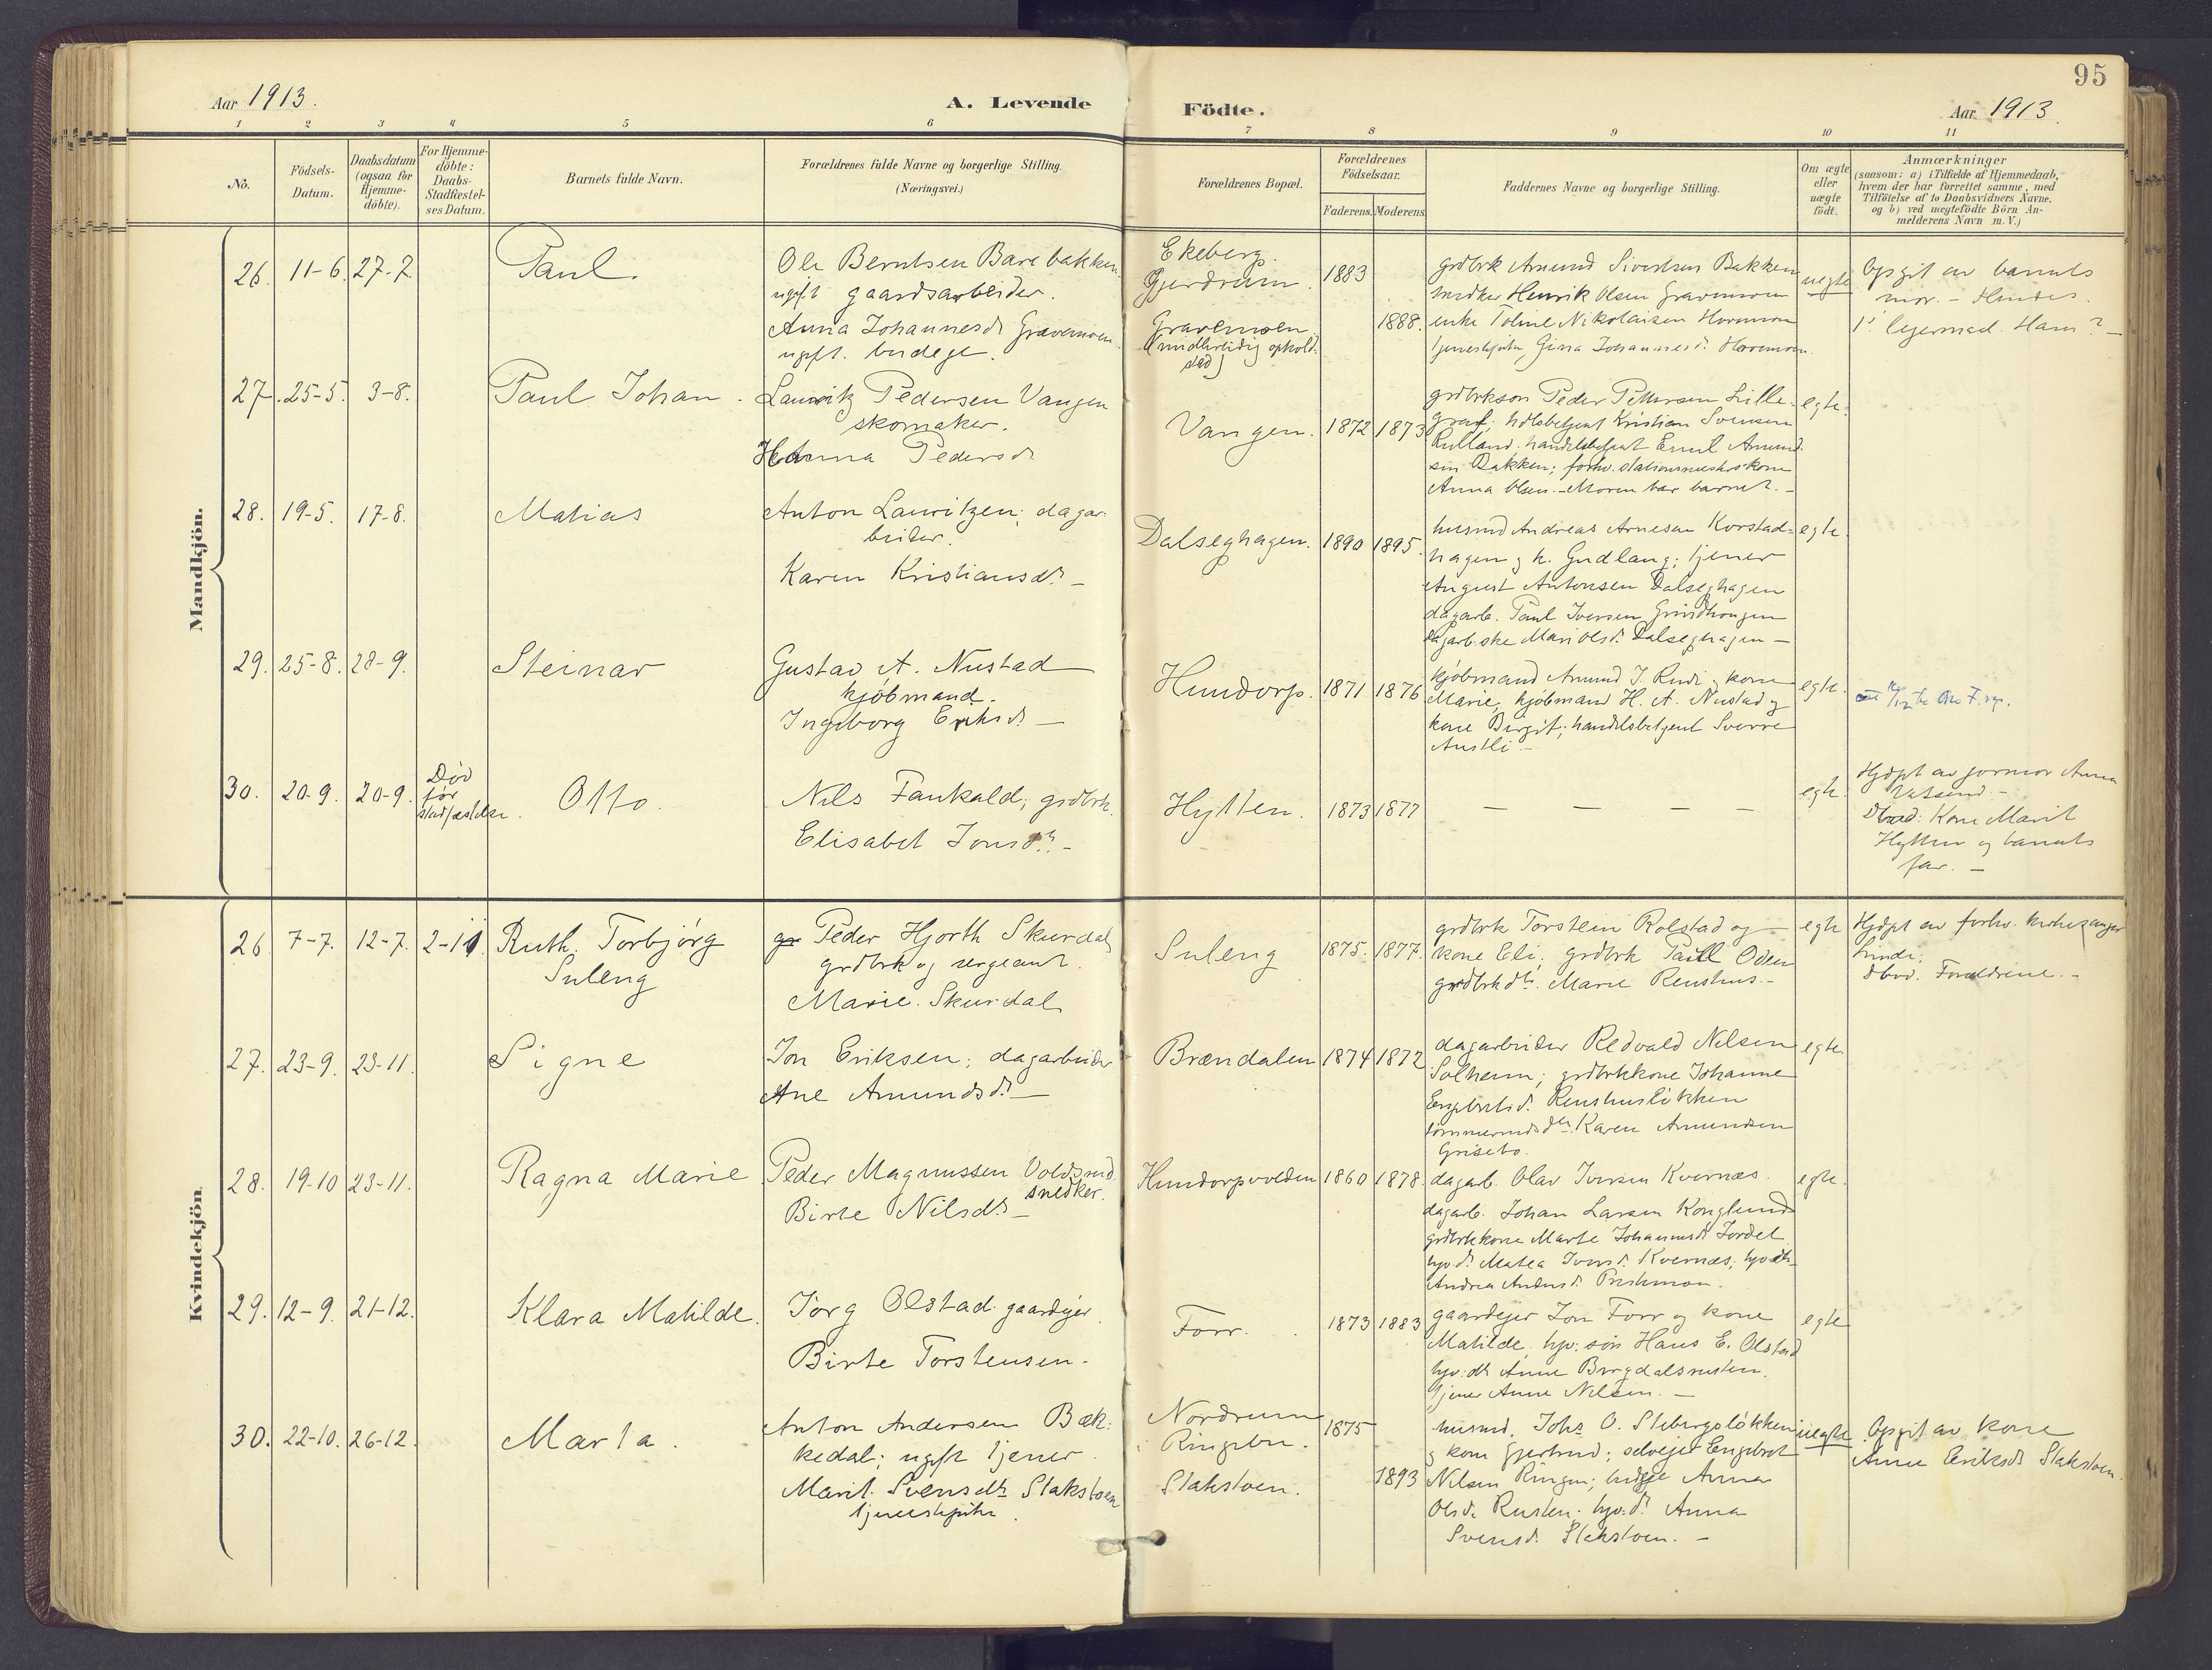 95
Aar 1913.
A. Levende Födte.
Aar 1913.
1 2 3 4 5 6 7 8 9 10 11
No.
Födsels-
Datum.
Daabsdatum
(ogsaa for
Hjemme-
döbte).
For Hjemme-
döbte:
Daabs-
Stadfæstel-
ses Datum.
Barnets fulde Navn.
Forældrenes fulde Navne og borgerlige Stilling.
(Næringsvei.)
Forældrenes Bopæl.
Forældrenes
Födselsaar.
Faderens. Moderens.
Faddernes Navne og borgerlige Stilling.
Om ægte
eller
uægte
födt.
Anmærkninger
(saasom: a) i Tilfælde af Hjemmedaab,
hvem der har forrettet samme, med
Tilföielse af to Daabsvidners Navne.
og b) ved uægtefödte Börn An-
melderens Navn m. V.)
Mandkjön.
26. 11-6. 27-7. Paul.
Ole Berntsen Barebakken
ugift gaardsarbeider.
Anna Johannesdr Gravemoen
ugift. budeie.
Ekeberg.
Gjerdrum.
Gravemoen.
(midlertidig ophold-
sted)
1883
1888.
grdbrk Amund Sivertsen Bakken
snedker Henrik Olsen Gravemoen
enke Toline Nikolaisen
Gina Johannesdr
uegte
Opgit av barnets
mor. - Hendes
1ste leiermaal. Hans ? -
27. 25-5. 3-8. Paul Johan.
Lauritz Pedersen Vangen
skomaker.
Hanna Pedersdr
Vangen. 1872 1873
grdbrkson Peder Pettersen Lille-
graf; hdlsbetjent Kristian Svensen
Rulland. handelsbetjent Emil Amund-
sen Bakken; forhv. stationsmesterskone
Anna Olsen. - Moren bar barnet. -
egte.
28. 19-5. 17-8. Matias
Anton Lauritzen; dagar-
beider.
Karen Kristiansdr -
Dalseghagen. 1890 1895.
husmd Andreas Arnesen Korstad-
hagen og k. Gudlaug; tjener
August Antonsen Dalseghagen
dagarb. Paul Iversen
dagarb.ske Mari Olsdr. Dalseghagen -
egte.
29. 25-8. 28-9. Steinar
Gustav A. Nustad
kjøbmand.
Ingeborg Eriksdr -
Hundorp. 1871 1876
kjøbmand Amund J. Rudi og kone
Marie; kjøbmand H. A. Nustad og
kone Birgit; handelsbetjent Sverre
Austli -
egte.
30. 20-9. 20-9. Død
før
stadfæstelse.
Otto.
Nils Fankald; grdbrk.
Elisabet Jonsdr. -
Hytten. 1873 1877
— — — —
egte.
Hjdpt av jormor Anna
- Dbvd: Kone Marit
Hytten og barnets
far. -
Kvindekjön.
26. 7-7. 12-7. 2-11 Ruth Torbjørg
Suleng
Peder Hjorth Skurdal
grdbrk og sergeant.
Marie Skurdal
Suleng 1875. 1877.
grdbrk Torstein Rolstad og -
kone Eli; grdbrk Paul Oden
grdbrkdtr Marie Renshus. -
egte
Hjdpt av forhv. kirkesanger
Linde.
Dbvd. Forældrene. -
27. 23-9. 23-11. Signe
Jon Eriksen; dagarbeider
Ane Amundsdr -
Brændalen 1874 1872
dagarbeider Redvald Nilsen
Solheim; grdbrkkone Johanne
Engebretsdr. Renshusløkken
tømmermdsdtr. Karen Amundsen
Grisebo.
egte
28. 19-10 23-11. Ragna Marie
Peder Magnussen Voldsmd.
snedker.
Birte Nilsdr -
Hundorpvolden 1860 1878.
dagarb. Olav Iversen Kvernæs.
dagarb. Johan Larsen Konglund
grdbrkkone Marte Johannesdr Jordet
hjv.dr Matea Iversdr. Kvernæs; hjv.dtr
Andrea
egte.
29. 12-9. 21-12. Klara Matilde.
Jørg Olstad gaardejer.
Birte Torstensen.
Forr. 1873 1883
gaardejer Jon Forr og kone
Matilde, hjv. søn Hans E. Olstad
hjv. dtr Anne
tjener Anne Nilsen. -
egte
30. 22-10. 26-12. Marta.
Anton Andersen Bæk-
kedal; ugift tjener.
Marit Svensdtr Slakstoen
Nordrum
i Ringebu.
Slakstoen.
1875
1893
husmd. Johs O. Stebergsløkken
og kone Gjertrud; selveier Engebret
Nilsen Ringen; budeie Anna
Olsdr Rusten; hjv.dr Anna
Svensdr Slakstoen. -
uegte
Opgit av kone
Anne Eriksdr Slakstoen.